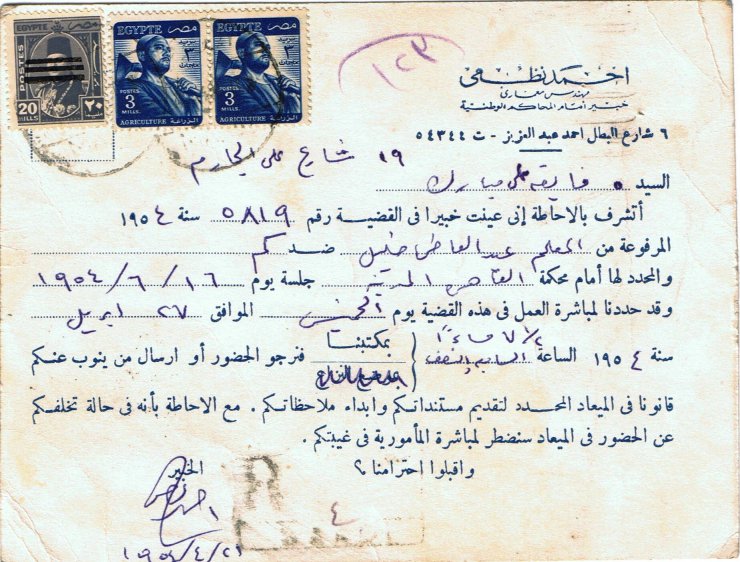 EGYPTE مصر
POSTES
20 ٢٠
MILLS
EGYPTE مصر
٣
POSTES
3
MILLS.
AGRICULTURE الزراعة
EGYPTE مصر
٣
POSTES
3
MILLS.
AGRICULTURE الزراعة
١٢٣
احمد نظمى
مهندس معمارى
خبير أمام المحاكم الوطنية
٦ شارع البطل احمد عبد العزيز - ت ٥٤٣٤٤
١٩ شارع على الجارم
السيده فايقه على مبارك
أتشرف بالاحاطة إنى عينت خبيرا فى القضية رقم ٥٨١٩ سنة ١٩٥٤
المرفوعة من المعلم عبد العاطى خليل ضدكم
والمحدد لها أمام محكمة القاهره جلسة يوم ١٦/٦/١٩٥٤
وقد حددنا لمباشرة العمل فى هذه القضية يوم الموافق ٢٧ ابريل
سنة ١٩٥٤ الساعة ٧ ١/٢ مساءً السابعه والنصف بمكتبنا فنرجو الحضور أو ارسال من ينوب عنكم
قانونا فى الميعاد المحدد لتقديم مستنداتكم وابداء ملاحظاتكم . مع الاحاطة بأنه فى حالة تخلفكم
عن الحضور فى الميعاد سنضطر لمباشرة المأمورية فى غيبتكم .
واقبلوا احترامنا ؟
الخبير
٤
١٩٥٤/٤/٢١